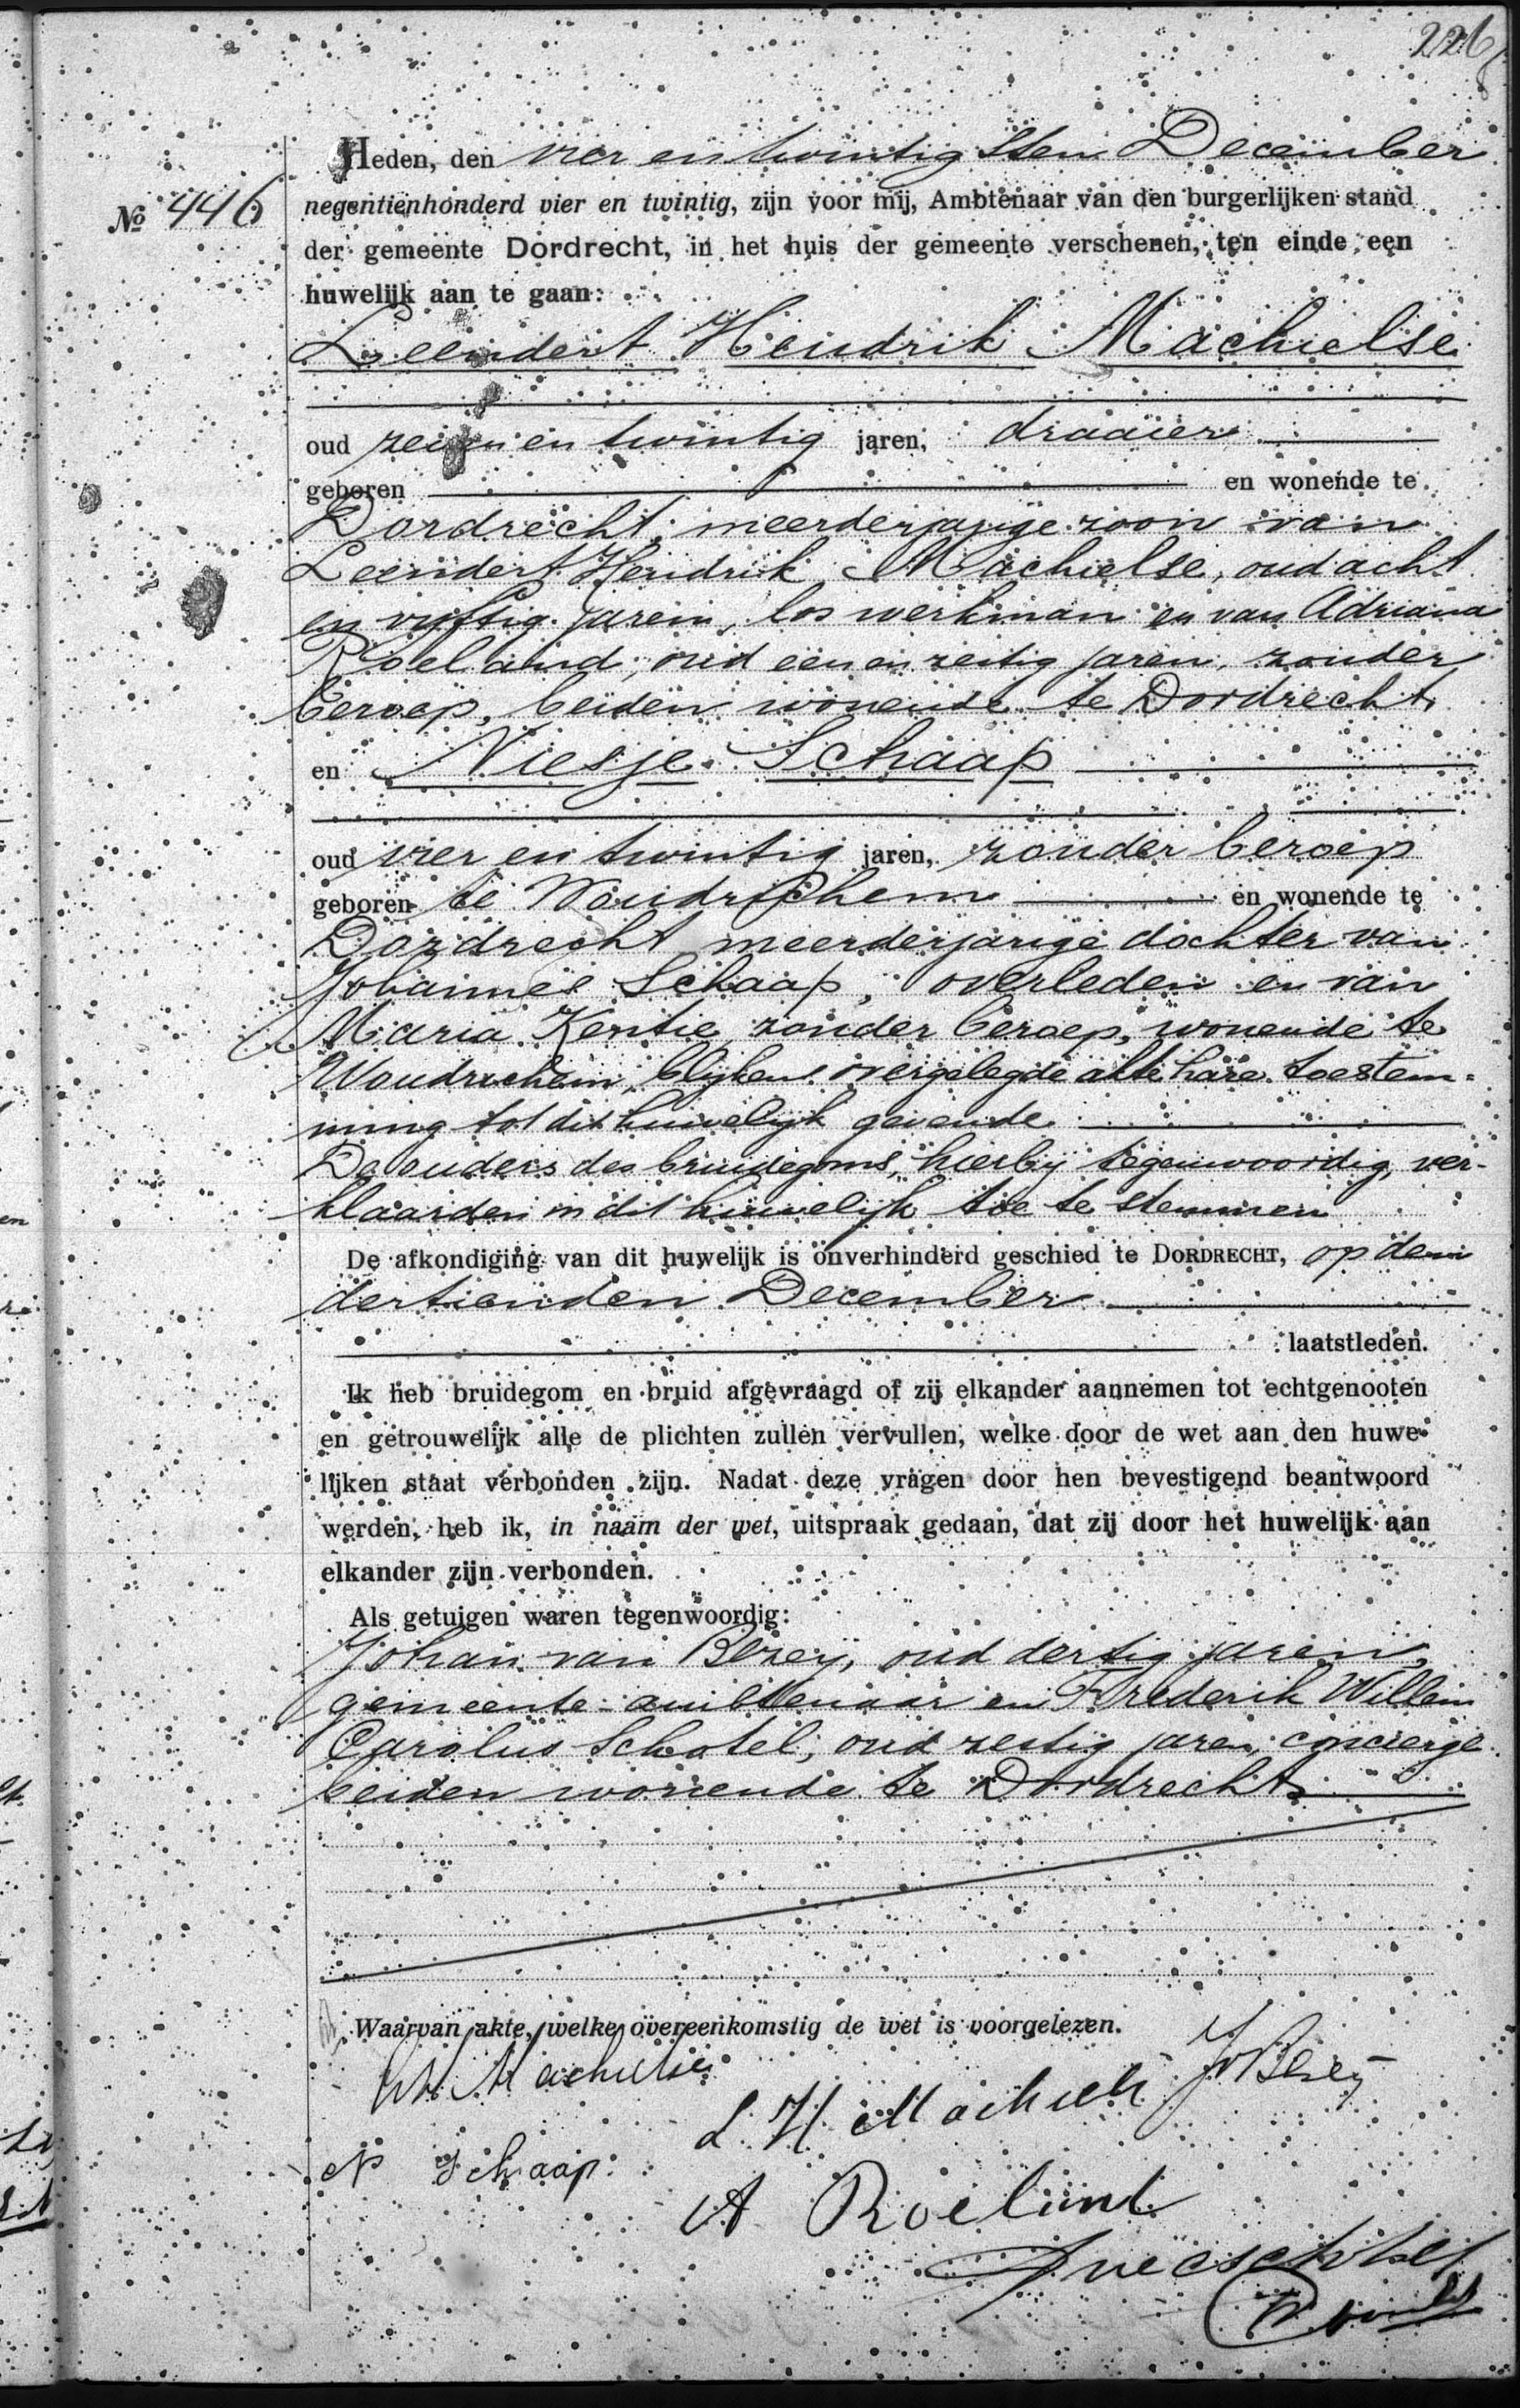 226
Heden, den vier en twintigsten December
No 446
negentienhonderd vier en twintig, zijn voor mij, Ambtenaar van den burgerlijken stand
der gemeente Dordrecht, in het huis der gemeente verschenen, ten einde een
huwelijk aan te gaan:
Leendert Hendrik Machielse
oud zeven en twintig jaren, draaier
geboren en wonende te
Dordrecht, meerderjarige zoon van
Leendert Hendrik Machielse, oud acht
en vijftig jaren, los werkman en van Adriana
Roeland, oud een en zestig jaren, zonder
beroep, beiden wonende te Dordrecht
en Niesje Schaap
oud vier en twintig jaren, zonder beroep
geboren te Woudrichem en wonende te
Dordrecht meerderjarige dochter van
Johannes Schaap, overleden en van
Maria Kentie, zonder beroep, wonende te
Woudrichem, blijkens overgelegde akte hare toestem-
ming tot dit huwelijk gevende
De ouders des bruidegoms, hierbij tegenwoordig, ver-
klaarden in dit huwelijk toe te stemmen
De afkondiging van dit huwelijk is onverhinderd geschied te DORDRECHT, op den
dertienden December
laatstleden.
Ik heb bruidegom en bruid afgevraagd of zij elkander aannemen tot echtgenooten
en getrouwelijk alle de plichten zullen vervullen, welke door de wet aan den huwe-
lijken staat verbonden zijn. Nadat deze vragen door hen bevestigend beantwoord
werden, heb ik, in naam der wet, uitspraak gedaan, dat zij door het huwelijk aan
elkander zijn verbonden.
Als getuigen waren tegenwoordig:
Johan van Bezey, oud dertig jaren,
gemeente-ambtenaar en Frederik Willem
Carolus Schotel, oud zestig jaren, concierge
beiden wonende te Dordrecht
Waarvan akte, welke overeenkomstig de wet is voorgelezen.
LH Machielse
JvBezey
L. H Machiels
N Schaap
A Roeland